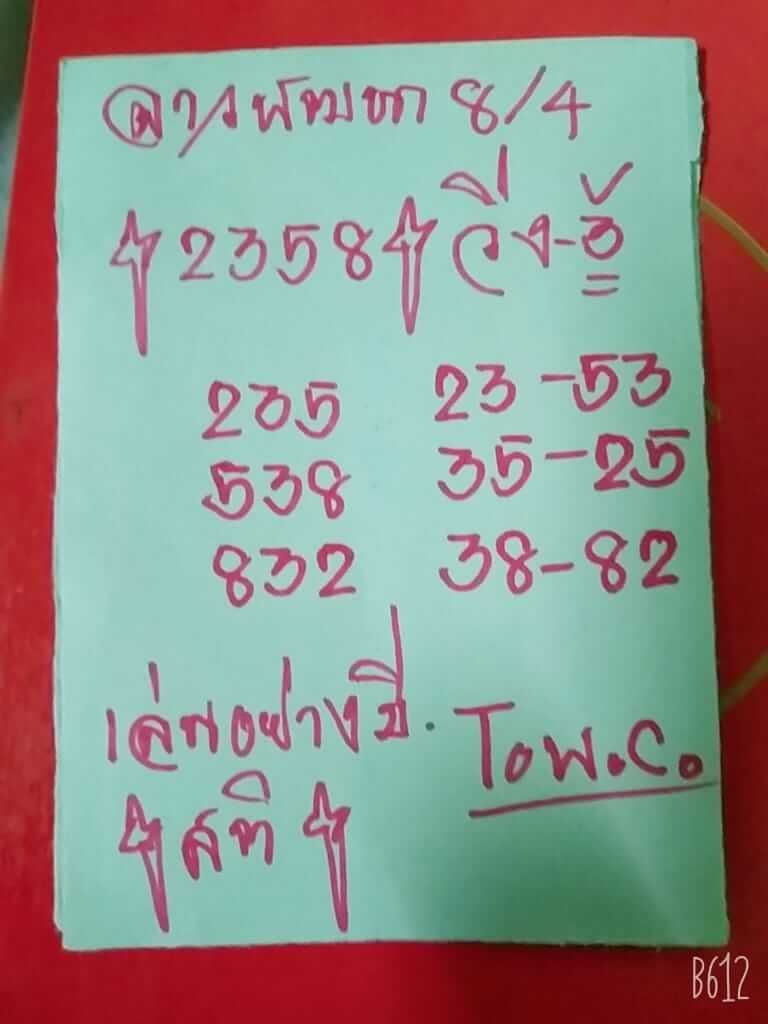 ลาวพัฒนา 8/4
2358 วิ่ง-3
235 23-53
538 35-25
832 38-82
เล่นอย่างมี.
สติ
Tow.C.
B612